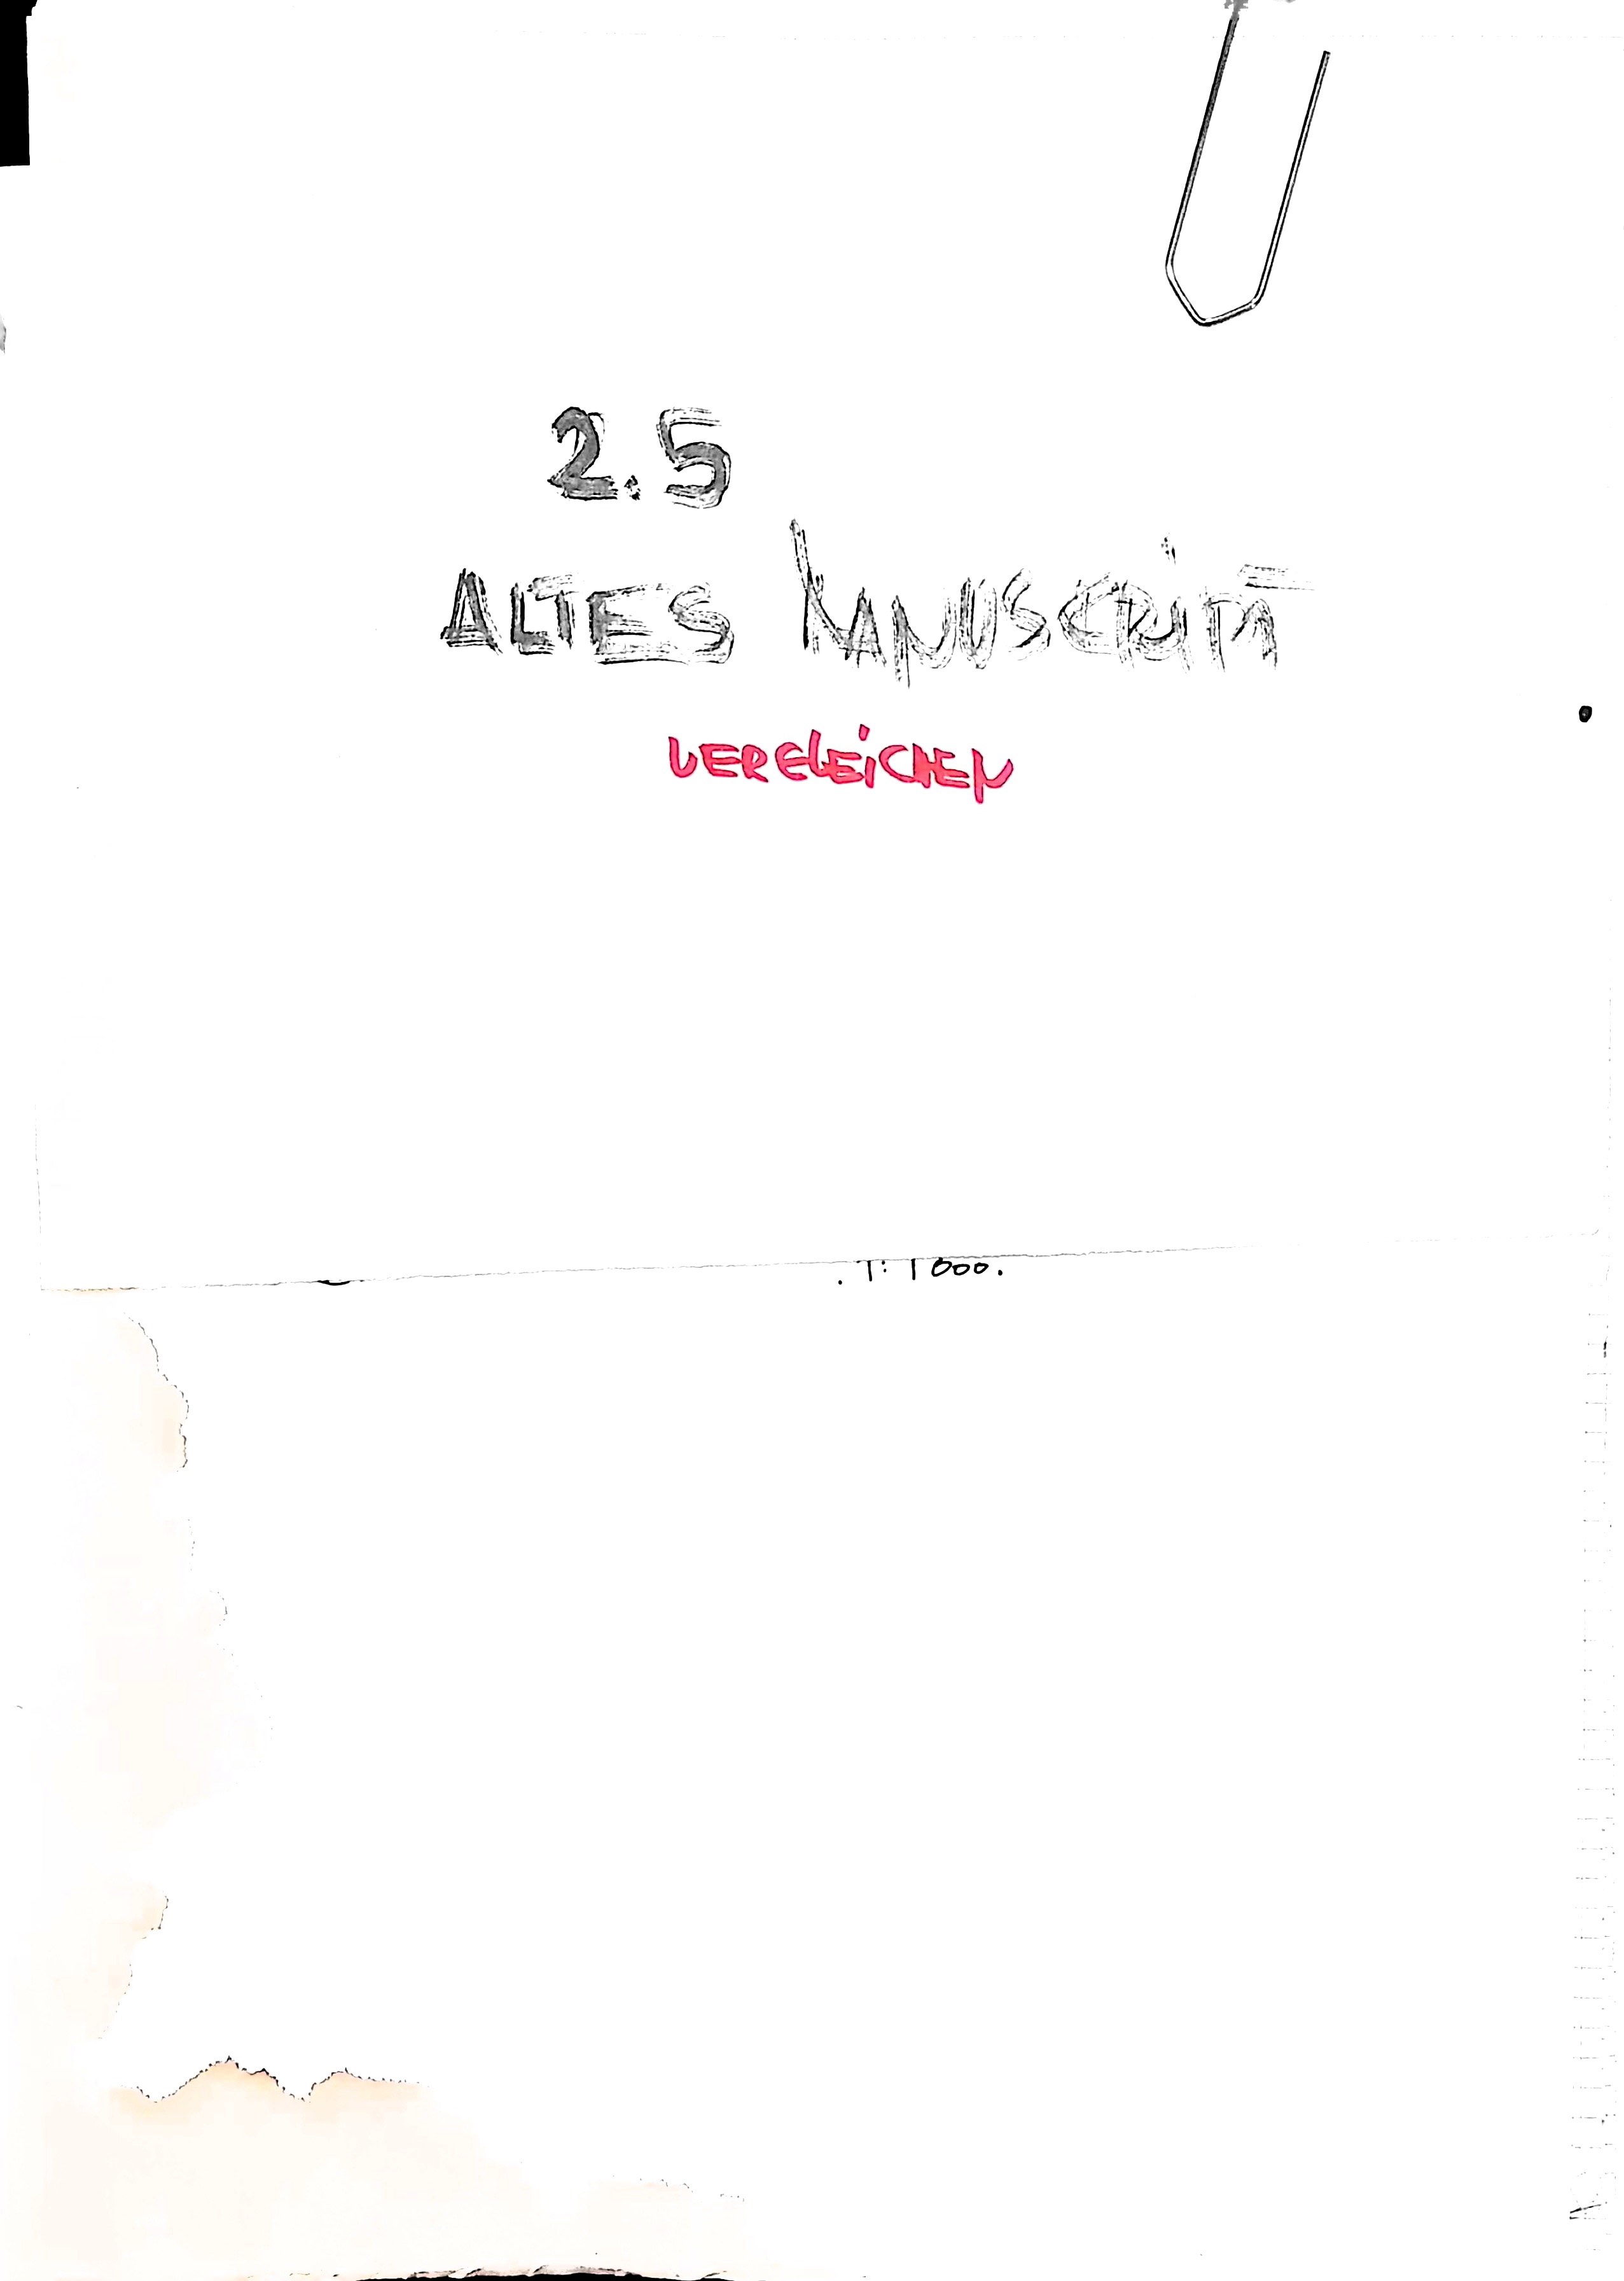 2.5
ALTES MANUSCRIPT
VERGLEICHEN
1:1000.